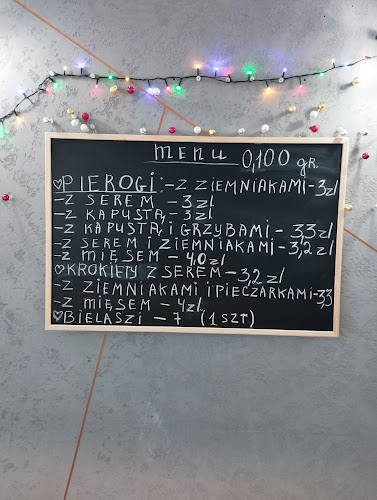 MENU 0,100 gr.
♡PIEROGI:-Z ZIEMNIAKAMI-3zł
-Z SEREM - 3zł
-Z KAPUSTĄ - 3zł
-Z KAPUSTĄ I GRZYBAMI - 3,3zł
-Z SEREM I ZIEMNIAKAMI - 3,2zł
-Z MIĘSEM - 4,0 zł
♡KROKIETY Z SEREM - 3,2 zł
-Z ZIEMNIAKAMI I PIECZARKAMI-3,3
-Z MIĘSEM - 4zł
♡BIELASZI - 7 (1 SZT)